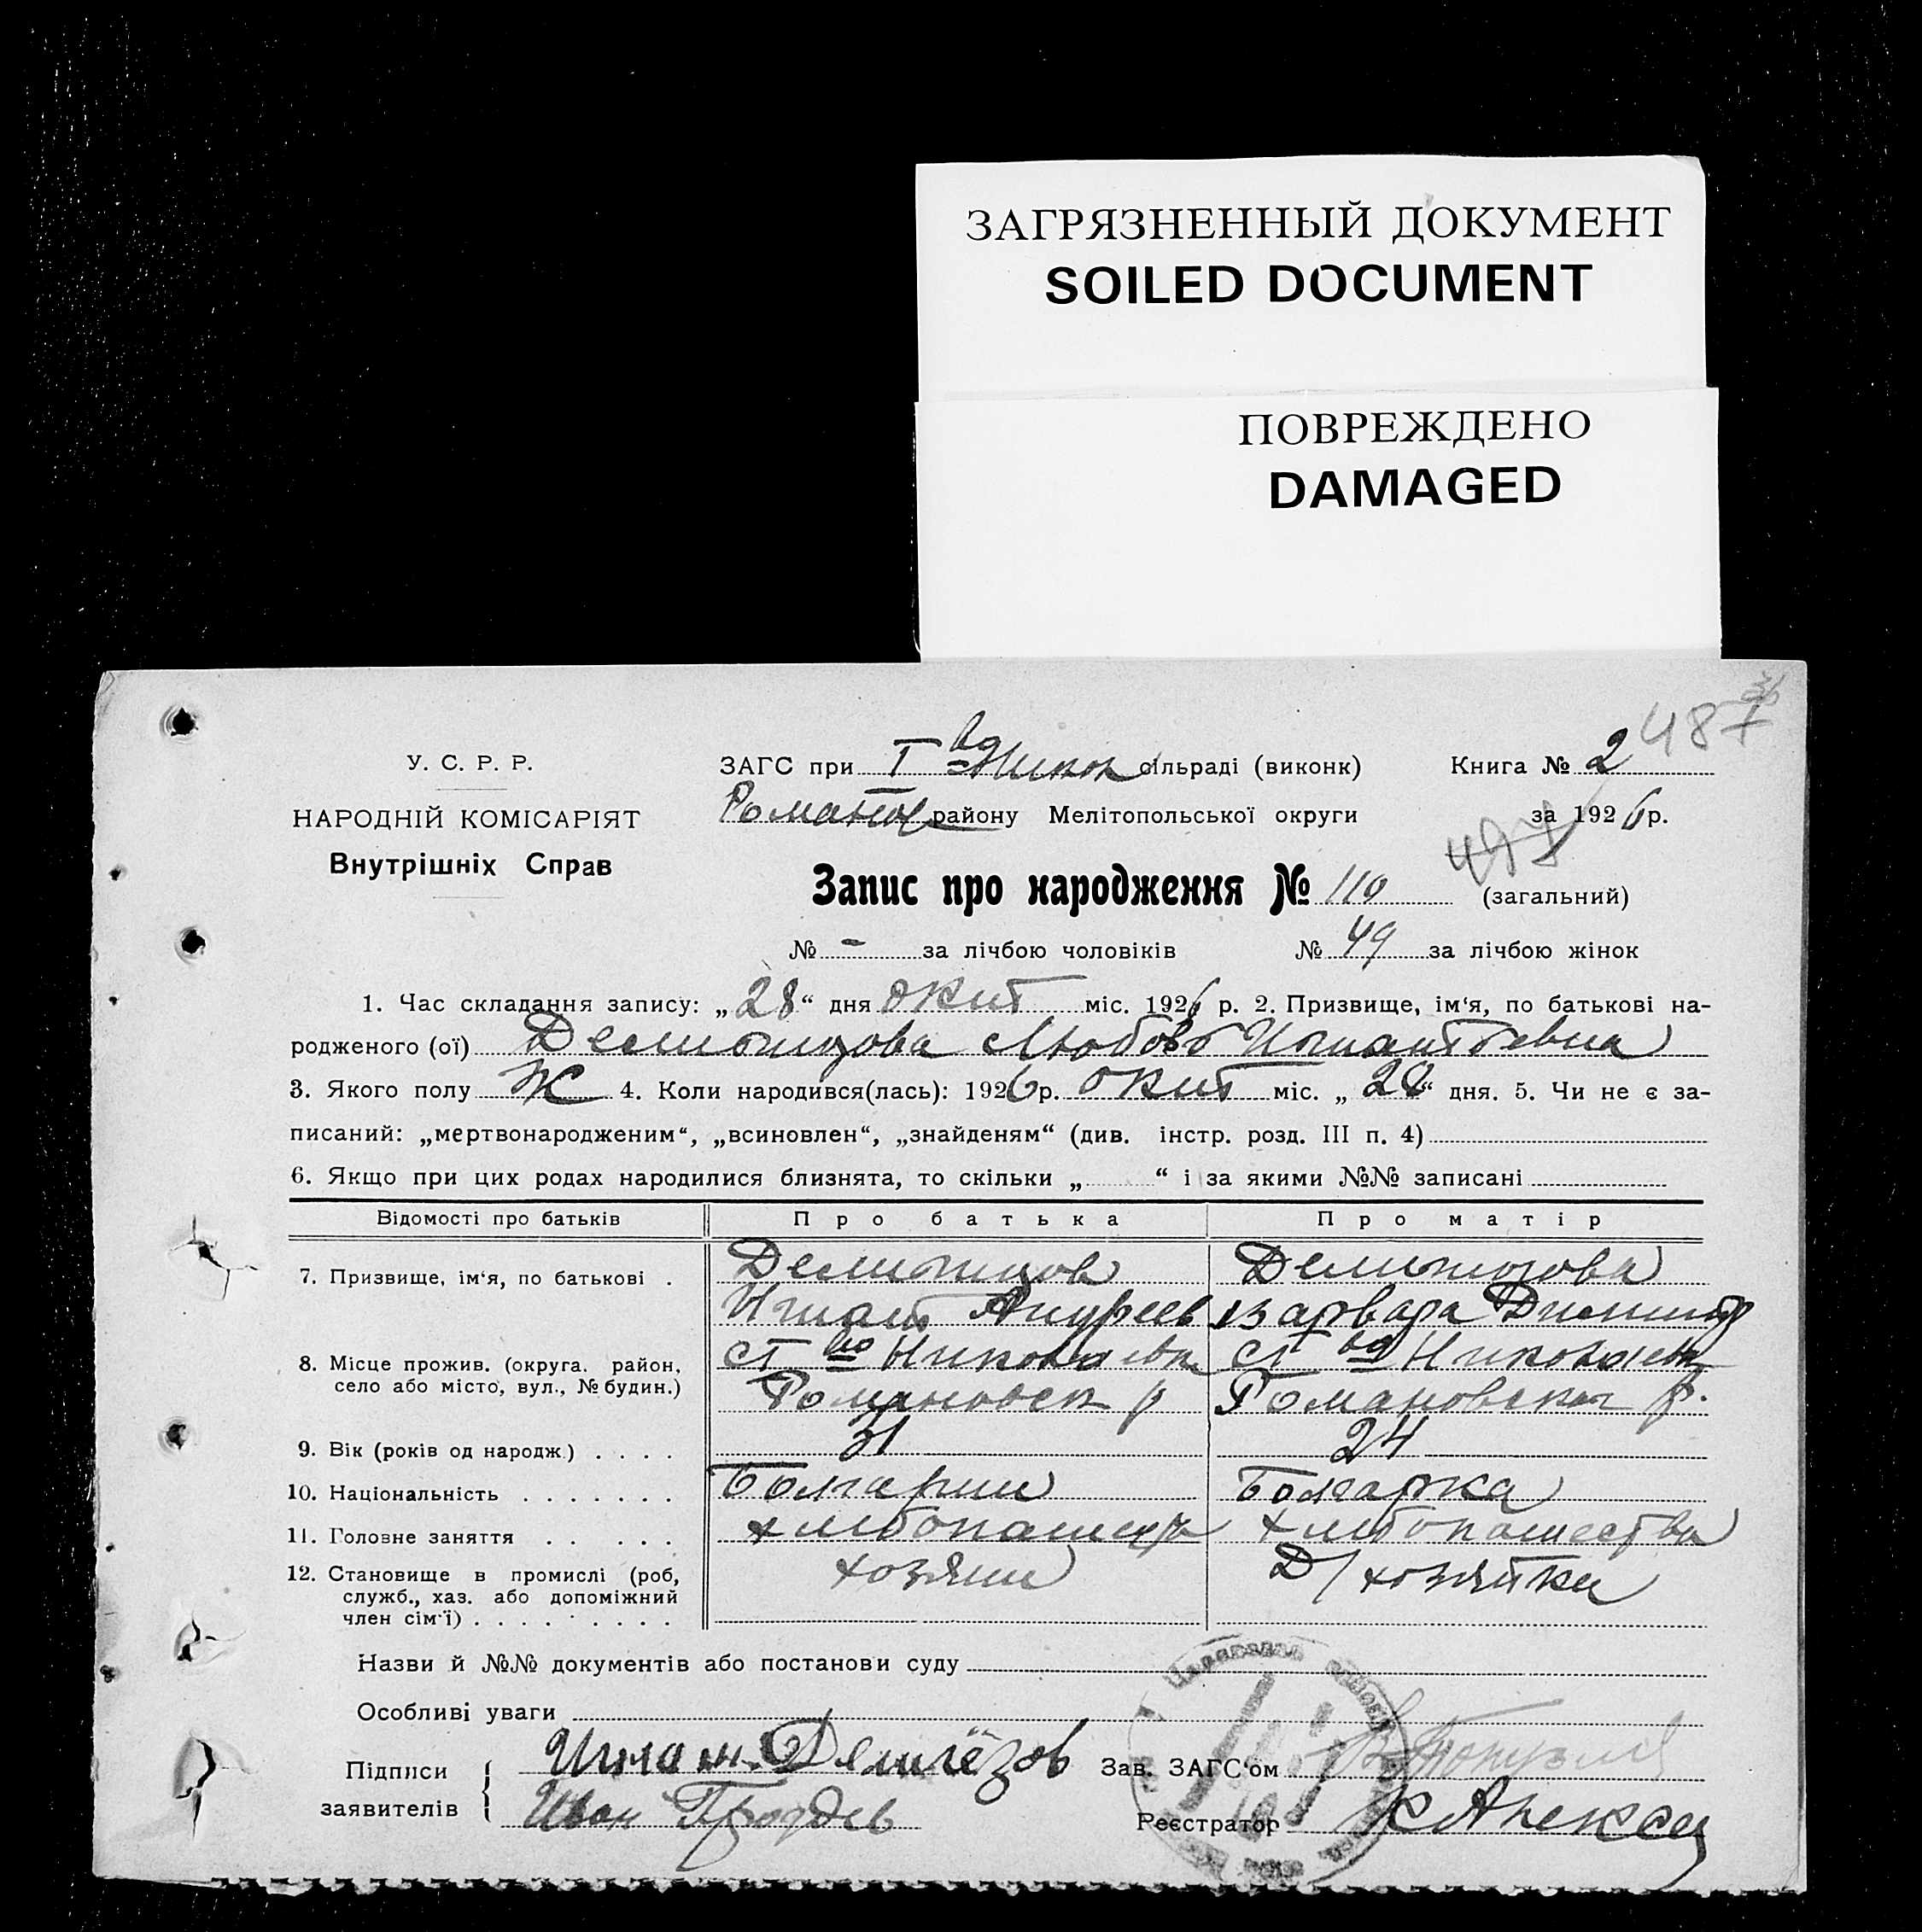 ЗАГРЯЗНЕННЫЙ ДОКУМЕНТ
SOILED DOCUMENT
ПОВРЕЖДЕНО
DAMAGED
487
У. С. Р. Р.
ЗАГС при сільраді (виконк) Книга № 2
НАРОДНІЙ КОМІСАРІЯТ
Роман району Мелітопольської округи за 1926 р.
Внутрішніх Справ
497
Запис про народження № 110 (загальний)
№ - за лічбою чоловіків № 49 за лічбою жінок
1. Час складання запису: „28“ дня окт міс. 1926 р. 2. Призвище, ім‘я, по батькові на-
родженого (ої) Любовь Игнатьевна
3. Якого полу Ж 4. Коли народився(лась): 1926 р. окт міс. „28“ дня. 5. Чи не є за-
писаний: „мертвонародженим“, „всиновлен“, „знайденям“ (див. інстр. розд. III п. 4)
6. Якщо при цих родах народилися близнята, то скільки „ “ і за якими №№ записані
Відомості про батьків Про батька Про матір
7. Призвище, ім‘я, по батькові .
Игнат Андреев Варвара
8. Місце прожив. (округа. район, село або місто, вул., № будин.)
ст во Николаевка ст во Николаевка
Романовск р Романовская р.
9. Вік (років од народж.) . . . . 31 24
10. Національність . . . . . . . Болгарин Болгарка
11. Головне заняття . . . . . хлебопашество хлебопашества
12. Становище в промислі (роб, служб., хаз. або допоміжний член сім‘ї) . . . . . . . . хозяин Д/хозяйка
Назви й №№ документів або постанови суду
Особливі уваги
Підписи заявителів
Игнат Зав. ЗАГС‘ом
Иван Реєстратор К Алексеу